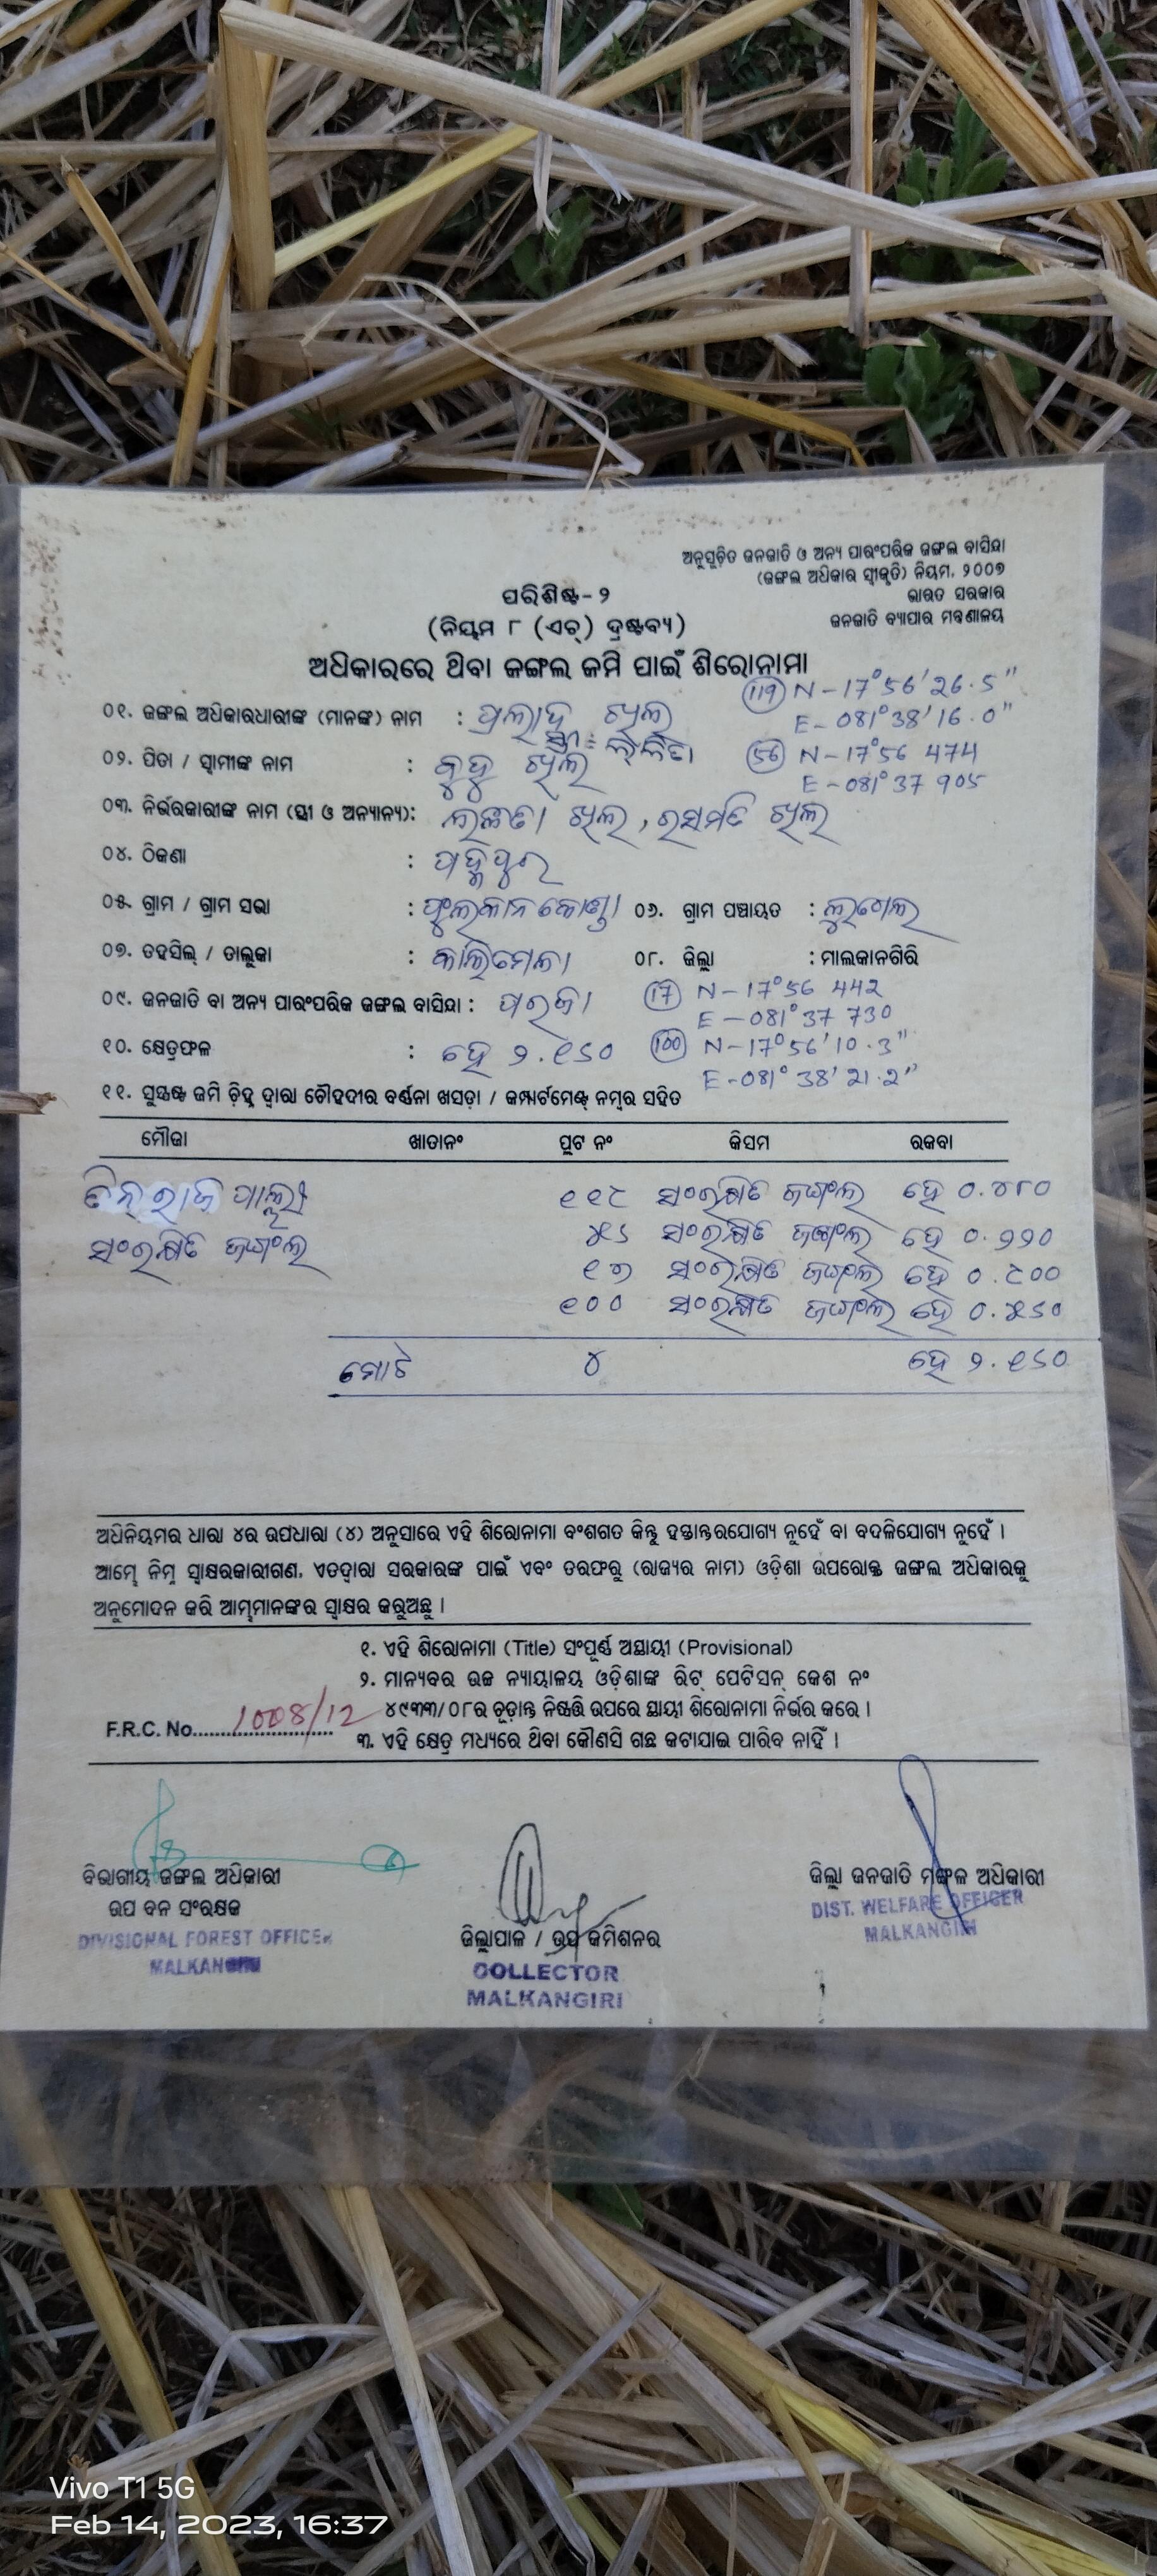 ଅନୁସୂଚିତ ଜନଜାତି ଓ ଅନ୍ୟ ପାରଂପରିକ ଜଙ୍ଗଲ ବାସିନ୍ଦା
(ଜଙ୍ଗଲ ଅଧିକାର ସ୍ୱୀକୃତି) ନିୟମ, ୨୦୦୭
ଭାରତ ସରକାର
ଜନଜାତି ବ୍ୟାପାର ମନ୍ତ୍ରଣାଳୟ
ପରିଶିଷ୍ଟ-୨
(ନିୟମ ୮ (ଏଚ୍) ଦ୍ରଷ୍ଟବ୍ୟ)
ଅଧିକାରରେ ଥିବା ଜଙ୍ଗଲ ଜମି ପାଇଁ ଶିରୋନାମା
(119) N-17°56'26.5"
E-081°38'16.0"
୦୧. ଜଙ୍ଗଲ ଅଧିକାରଧାରୀଙ୍କ (ମାନଙ୍କ) ନାମ : ପ୍ରଲାଦ ଖିଲ
(56) N-17°56 474
E-081°37 905
୦୨. ପିତା / ସ୍ୱାମୀଙ୍କ ନାମ : ବୁଦୁ ଖିଲ
୦୩. ନିର୍ଭରକାରୀଙ୍କ ନାମ (ସ୍ତ୍ରୀ ଓ ଅନ୍ୟାନ୍ୟ): ଖିଲ , ରସମତି ଖିଲ
୦୪. ଠିକଣା :
୦୫. ଗ୍ରାମ / ଗ୍ରାମ ସଭା : ଫୁଲକାନକୋଣ୍ଡା ୦୬. ଗ୍ରାମ ପଞ୍ଚାୟତ :
୦୭. ତହସିଲ୍ / ତାଲୁକା : କାଲିମେଳା ୦୮. ଜିଲ୍ଲା : ମାଲକାନଗିରି
୦୯. ଜନଜାତି ବା ଅନ୍ୟ ପାରଂପରିକ ଜଙ୍ଗଲ ବାସିନ୍ଦା : ପରଜା
(17) N-17°56 442
E-081°37 730
୧୦. କ୍ଷେତ୍ରଫଳ : ହେ ୨.୧୬୦
(100) N-17°56'10.3"
E-081°38'21.2"
୧୧. ସୁସ୍ପଷ୍ଟ ଜମି ଚିହ୍ନ ଦ୍ୱାରା ଚୌହଦୀର ବର୍ଣ୍ଣନା ଖସଡ଼ା / କମ୍ପାର୍ଟମେଣ୍ଟ୍ ନମ୍ବର ସହିତ
ମୌଜା ଖାତାନଂ ପ୍ଲଟ ନଂ କିସମ ରକବା
ପାଲ୍ଲୀ ୧୧୯ ସଂରକ୍ଷିତ ଜଙ୍ଗଲ ହେ ୦.୪୮୦
ସଂରକ୍ଷିତ ଜଙ୍ଗଲ ୫୬ ସଂରକ୍ଷିତ ଜଙ୍ଗଲ ହେ ୦.୨୨୦
୧୭ ସଂରକ୍ଷିତ ଜଙ୍ଗଲ ହେ ୦.୯୦୦
୧୦୦ ସଂରକ୍ଷିତ ଜଙ୍ଗଲ ହେ ୦.୫୬୦
ମୋଟ ୪ ହେ ୨.୧୬୦
ଅଧିନିୟମର ଧାରା ୪ର ଉପଧାରା (୪) ଅନୁସାରେ ଏହି ଶିରୋନାମା ବଂଶଗତ କିନ୍ତୁ ହସ୍ତାନ୍ତରଯୋଗ୍ୟ ନୁହେଁ ବା ବଦଳିଯୋଗ୍ୟ ନୁହେଁ ।
ଆମ୍ଭେ ନିମ୍ନ ସ୍ୱାକ୍ଷରକାରୀଗଣ, ଏତଦ୍ୱାରା ସରକାରଙ୍କ ପାଇଁ ଏବଂ ତରଫରୁ (ରାଜ୍ୟର ନାମ) ଓଡ଼ିଶା ଉପରୋକ୍ତ ଜଙ୍ଗଲ ଅଧିକାରକୁ
ଅନୁମୋଦନ କରି ଆମ୍ଭମାନଙ୍କର ସ୍ୱାକ୍ଷର କରୁଅଛୁ ।
୧. ଏହି ଶିରୋନାମା (Title) ସଂପୂର୍ଣ୍ଣ ଅସ୍ଥାୟୀ (Provisional)
୨. ମାନ୍ୟବର ଉଚ୍ଚ ନ୍ୟାୟାଳୟ ଓଡ଼ିଶାଙ୍କ ରିଟ୍ ପେଟିସନ୍ କେଶ ନଂ
୪୯୩୩/୦୮ର ଚୂଡ଼ାନ୍ତ ନିଷ୍ପତ୍ତି ଉପରେ ସ୍ଥାୟୀ ଶିରୋନାମା ନିର୍ଭର କରେ ।
F.R.C. No. 1008/12
୩. ଏହି କ୍ଷେତ୍ର ମଧ୍ୟରେ ଥିବା କୌଣସି ଗଛ କଟାଯାଇ ପାରିବ ନାହିଁ ।
ବିଭାଗୀୟ ଜଙ୍ଗଲ ଅଧିକାରୀ
ଉପ ବନ ସଂରକ୍ଷକ
DIVISIONAL FOREST OFFICER
MALKANGIRI
ଜିଲ୍ଲାପାଳ / ଉପ କମିଶନର
COLLECTOR
MALKANGIRI
ଜିଲ୍ଲା ଜନଜାତି ମଙ୍ଗଳ ଅଧିକାରୀ
DIST. WELFARE OFFICER
MALKANGIRI
Vivo T1 5G
Feb 14, 2023, 16:37